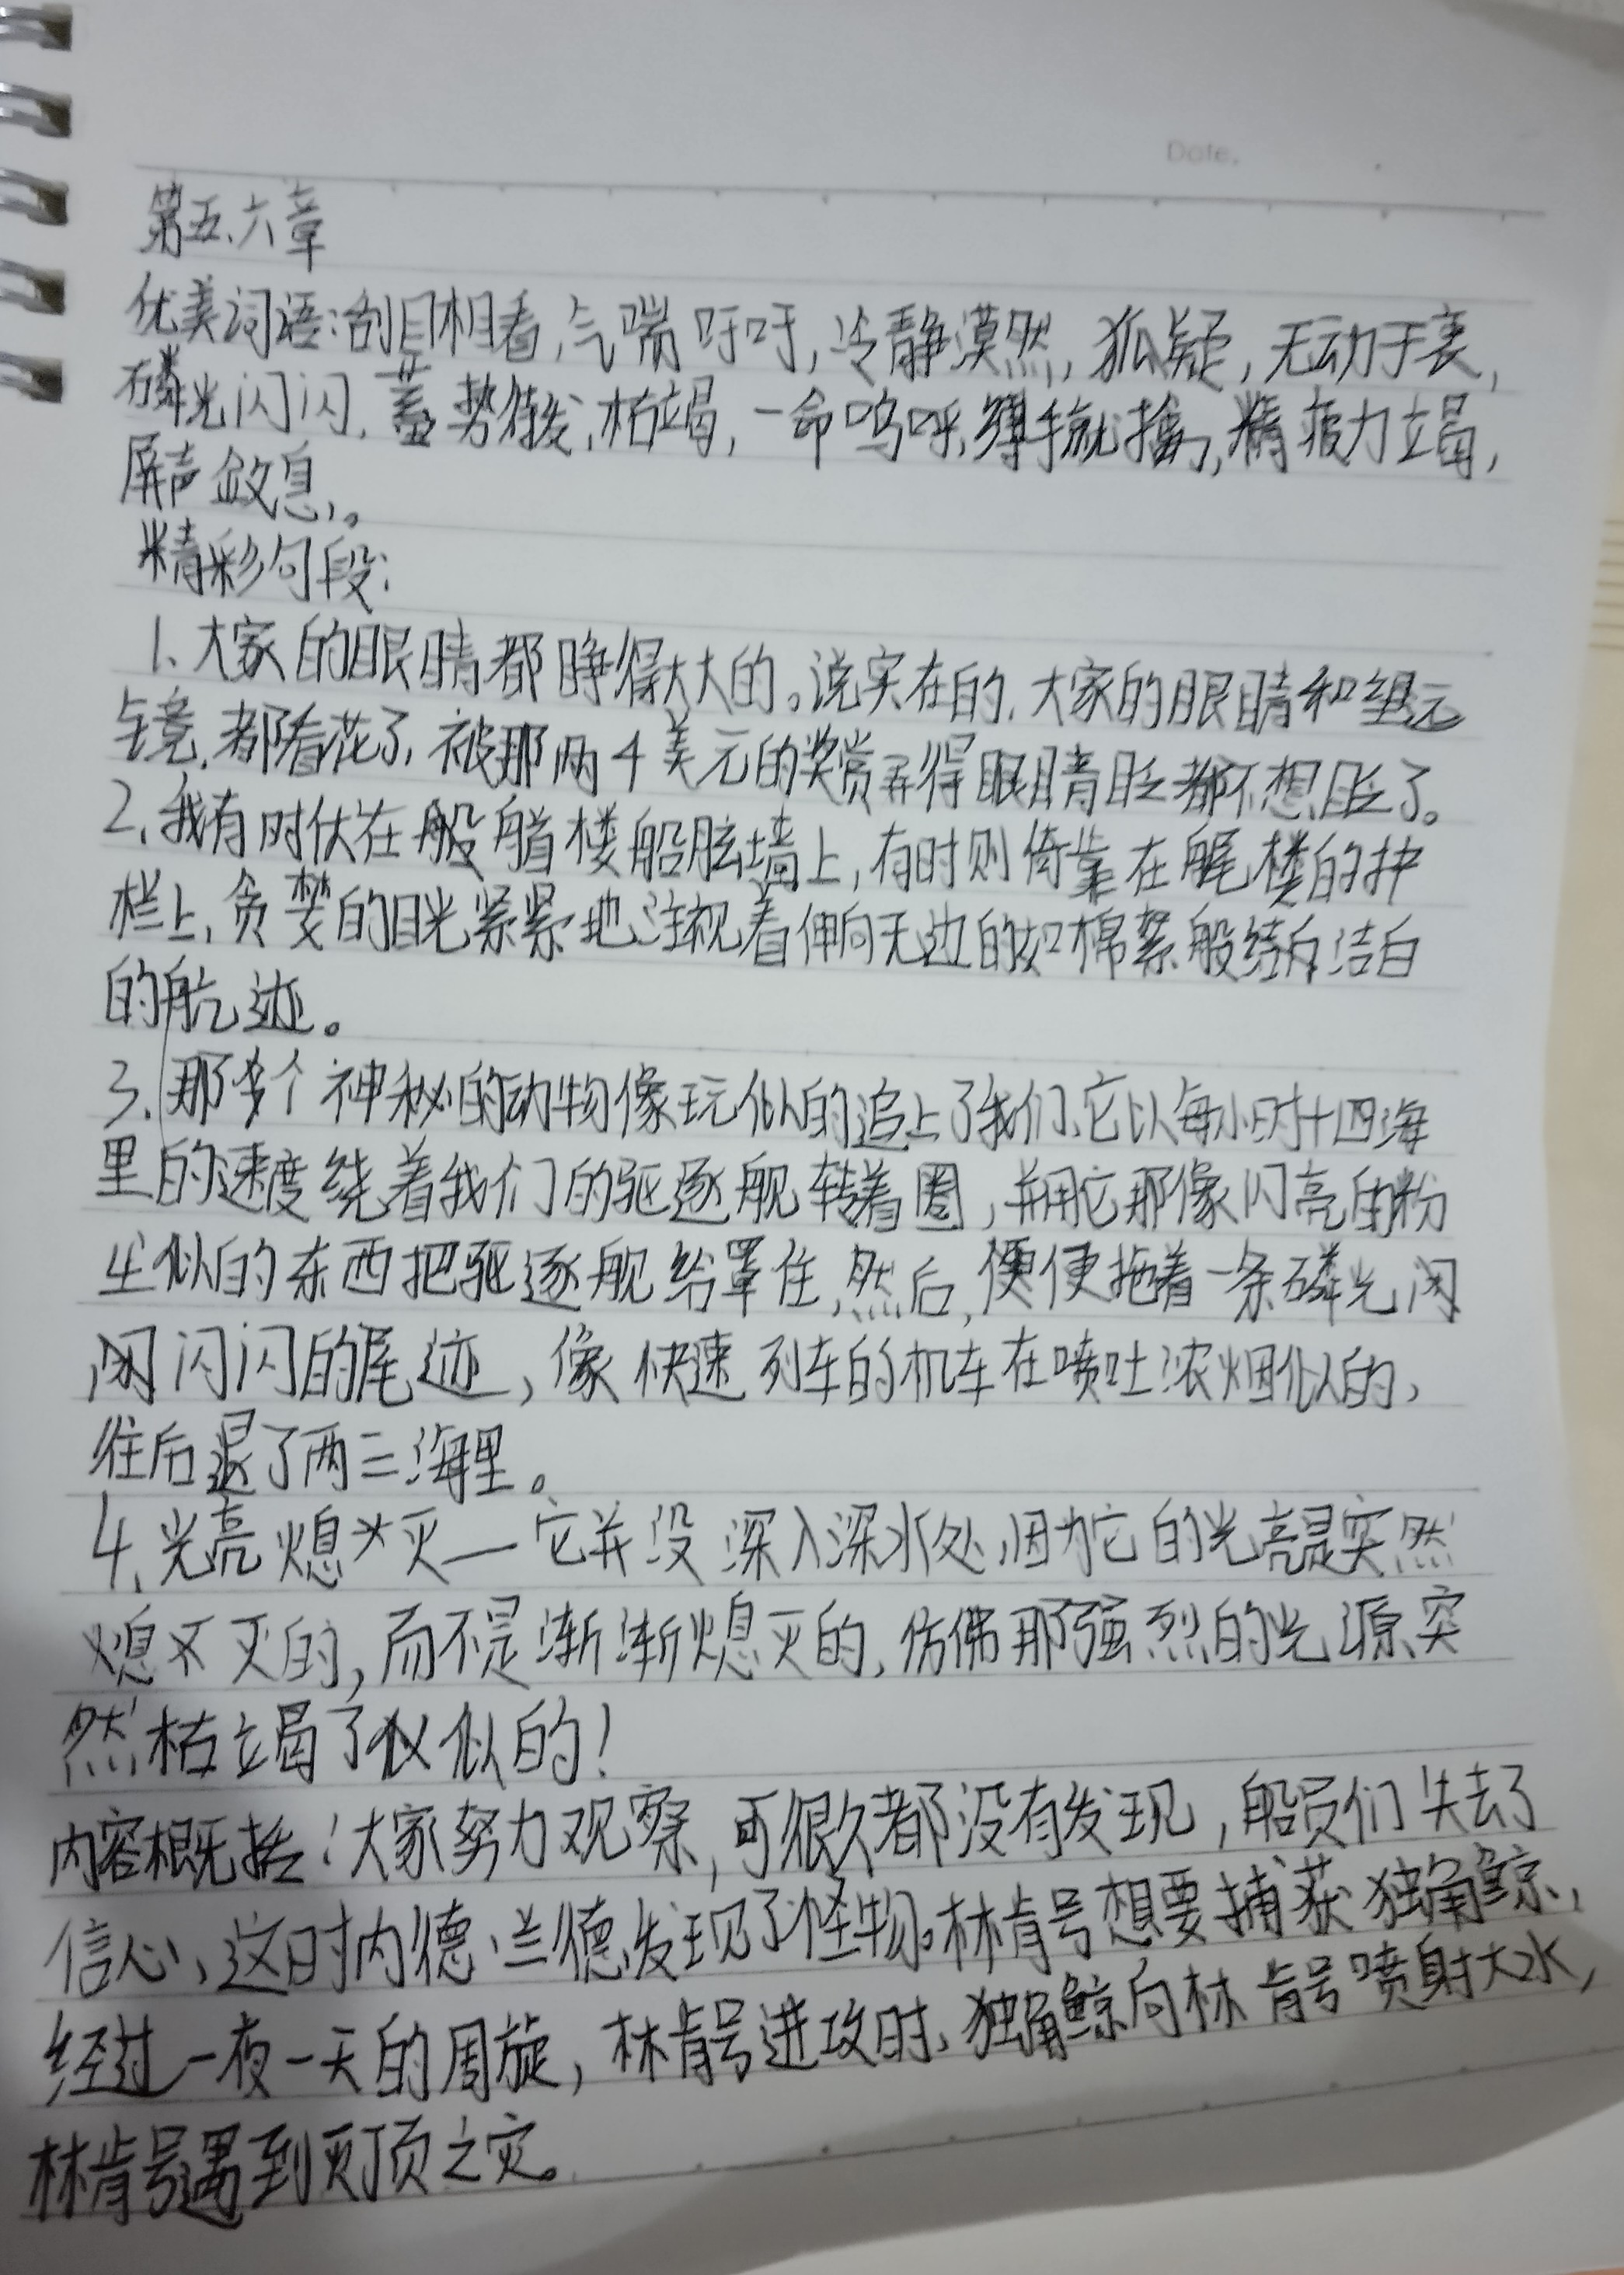 Date.
第五、六章
优美词语:刮目相看,气喘吁吁,冷静漠然,狐疑,无动于衷,
磷光闪闪,蓄势待发,枯竭,一命呜呼,缚手就擒,精疲力竭,
屏声敛息。
精彩句段:
1、大家的眼睛都睁得大大的。说实在的,大家的眼睛和望远
镜,都看花了,被那两千美元的奖赏弄得眼睛眨都不想眨了。
2、我有时伏在船艏楼船舷墙上,有时则倚靠在艉楼的护
栏上,贪婪的目光紧紧地注视着伸向无边的如棉絮般洁白
的航迹。
3、那个神秘的动物像玩似的追上了我们,它以每小时十四海
里的速度绕着我们的驱逐舰转着圈,并用它那像闪亮的粉
尘似的东西把驱逐舰给罩住,然后,便拖着一条磷光
闪闪的尾迹,像快速列车的机车在喷吐浓烟似的,
往后退了两三海里。
4、光亮熄灭——它并没深入深水处,因为它的光亮是突然
熄灭的,而不是渐渐熄灭的,仿佛那强烈的光源突
然枯竭了似的!
内容概括:大家努力观察,可很久都没有发现,船员们失去了
信心、这时内德·兰德发现了怪物。林肯号想要捕获独角鲸,
经过一夜一天的周旋,林肯号进攻时,独角鲸向林肯号喷射大水,
林肯号遇到灭顶之灾。